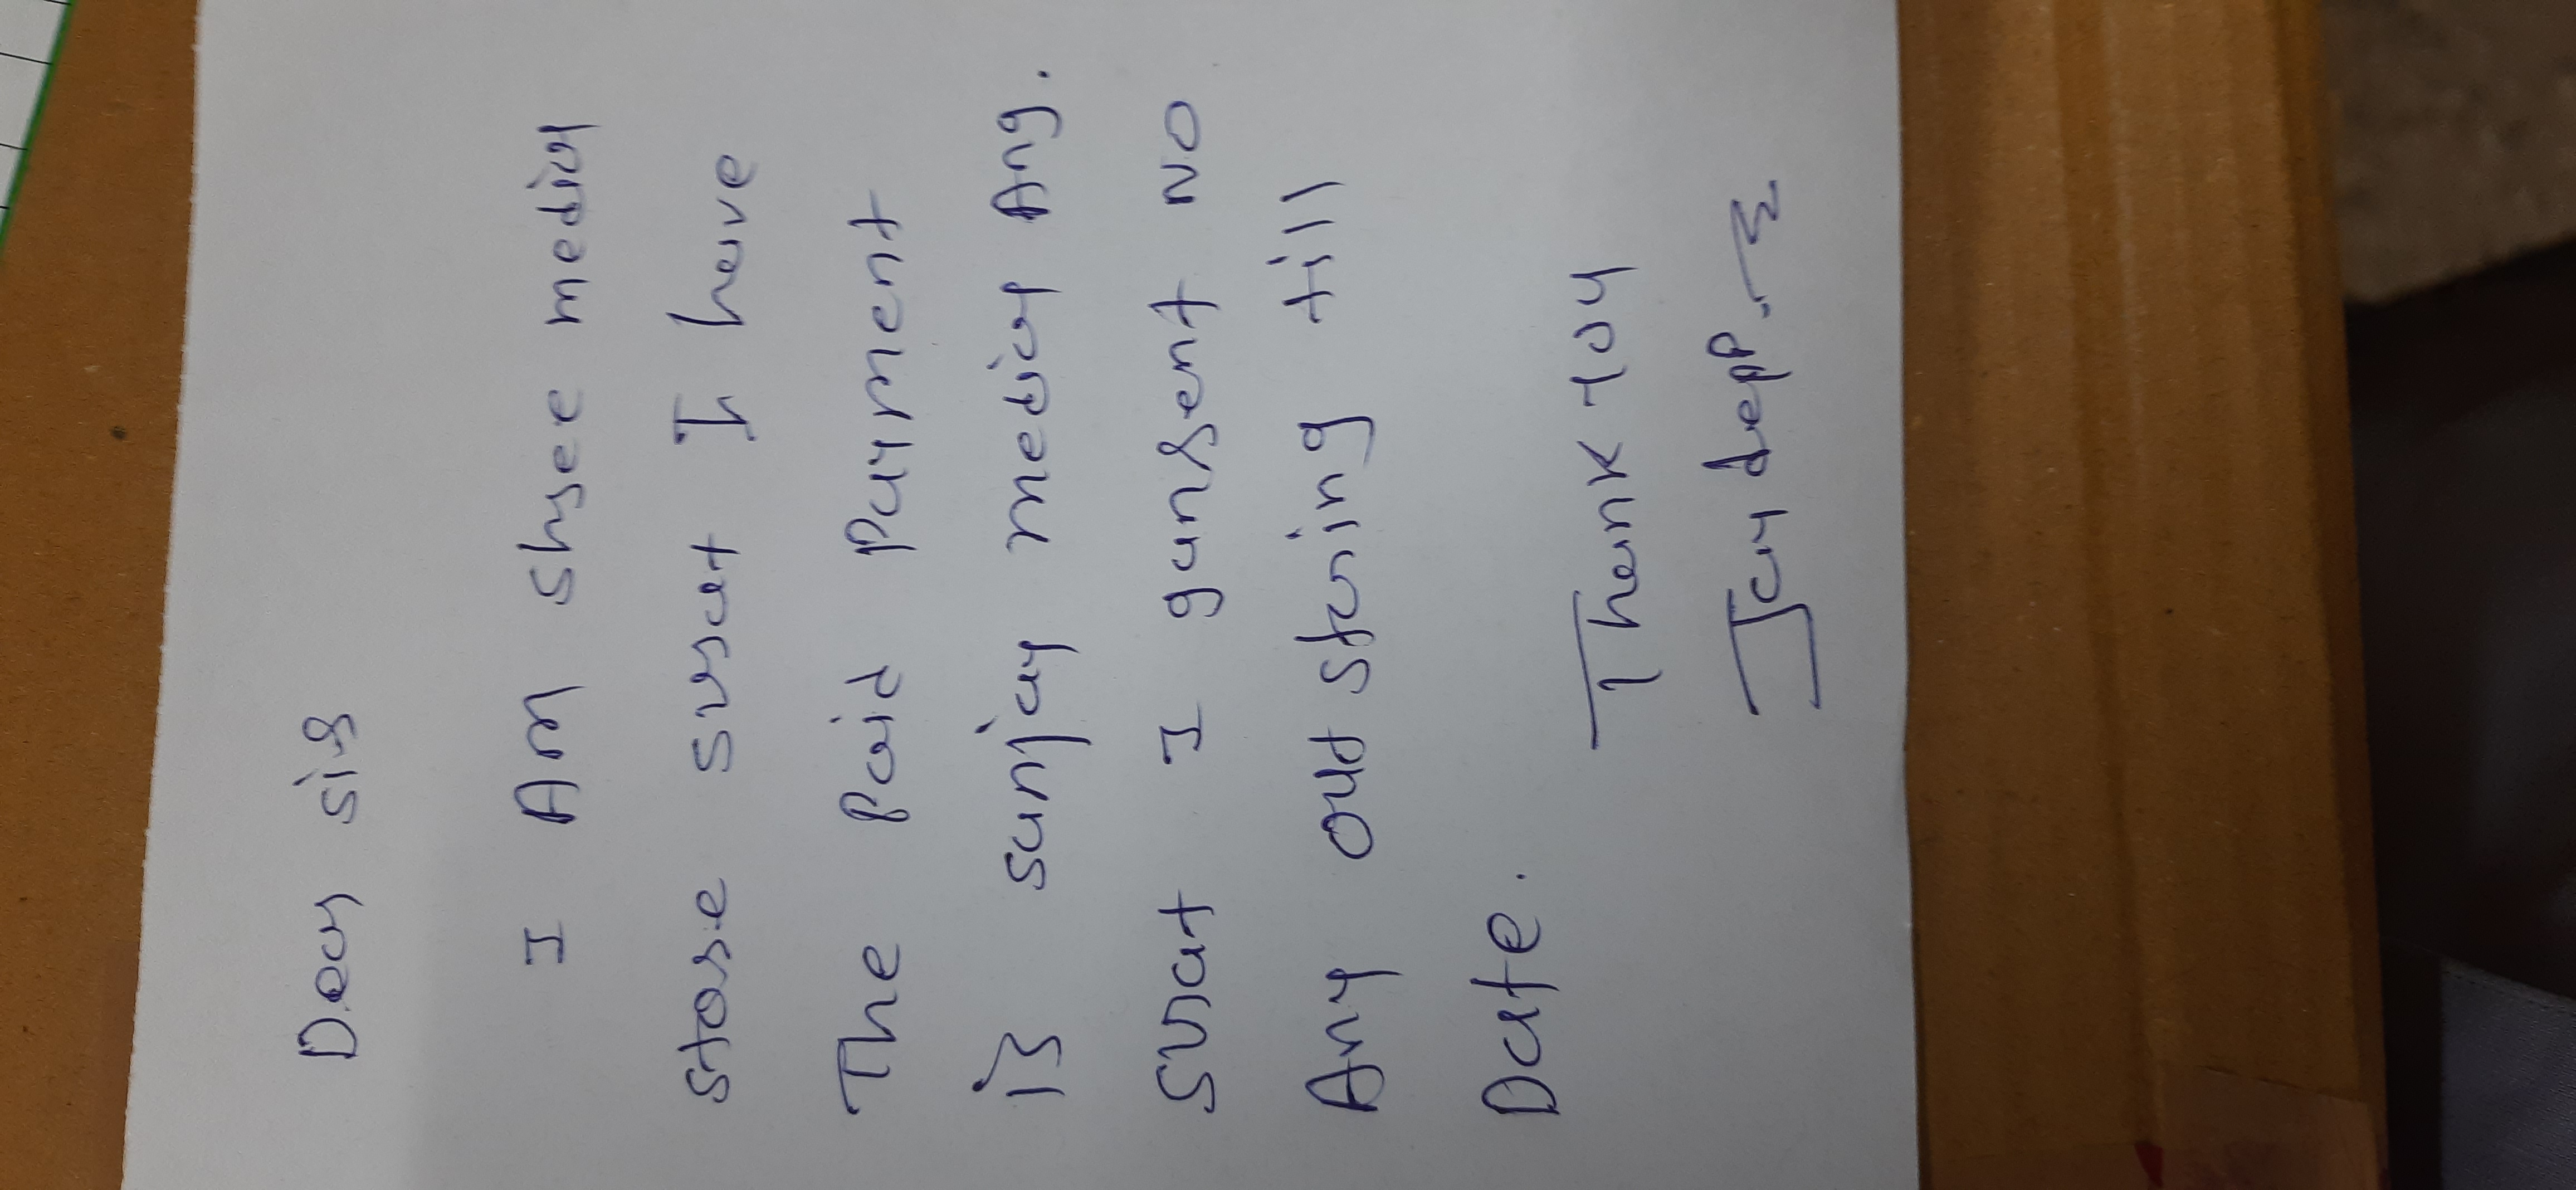 Dear sir
I Am shree medicy
store surat I have
The Paid Payment
is sanjay medicy Ang.
surat I garrent no
Any outstaning till
Date.
Thank you
Jaydepp.